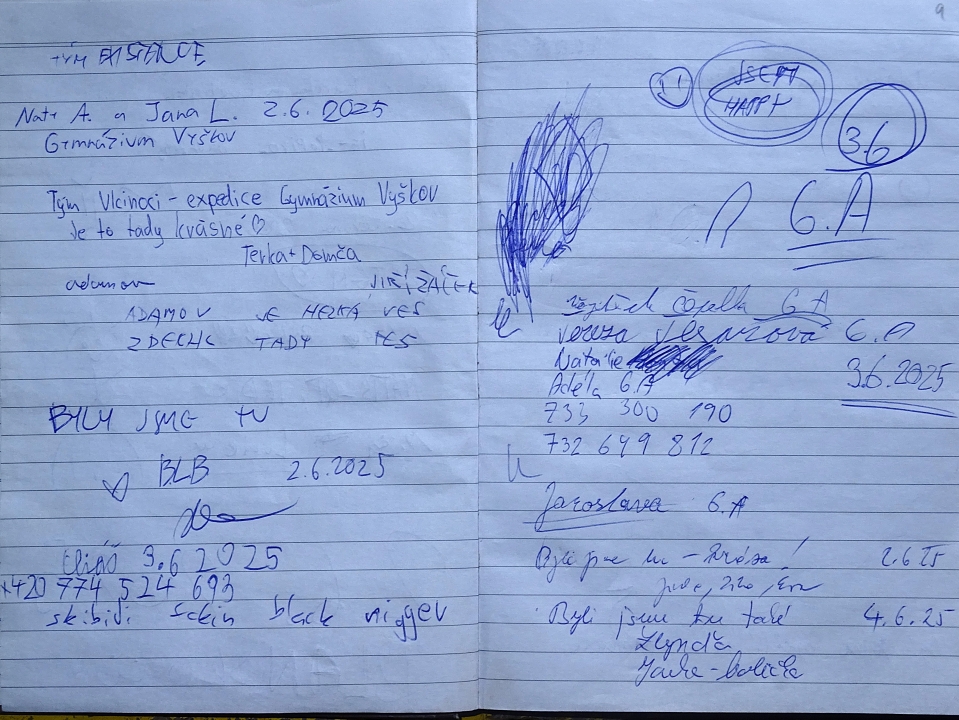 TÝM EXISTENCE
Natt A. a Jana L. 2.6. 2025
Gymnázium Vyškov
Tým Vlčinoci - expedice Gymnázium Vyškov
Je to tady krásné ♡
Terka + Domča
adamov JIŘÍ ŽÁČEK
ADAMOV JE HEZKÁ VES
ZDECHL TADY PES
BYLY JSME TU
BLB 2.6.2025
Eliáš 3.6 2025
+420 774 524 693
skibidi fckin black nigger
9
JSEM
HAPPY
3.6
6.A
Vojtěch Čápelka 6.A
6.A
Natálie
Adéla 6.A
3.6.2025
733 300 190
732 649 812
Jaroslava 6.A
Byli jsme tu - ! 2.6.25
Byli jsme tu také 4.6.25